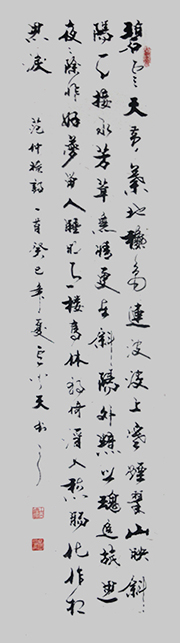 碧雲天黄葉地秋色連波波上寒煙翠山映斜
陽天接水芳草無情更在斜陽外黯鄉魂追旅思
夜夜除非好夢留人睡明月樓高休獨倚酒入愁腸化作相
思淚
范仲淹詞一首癸巳年夏